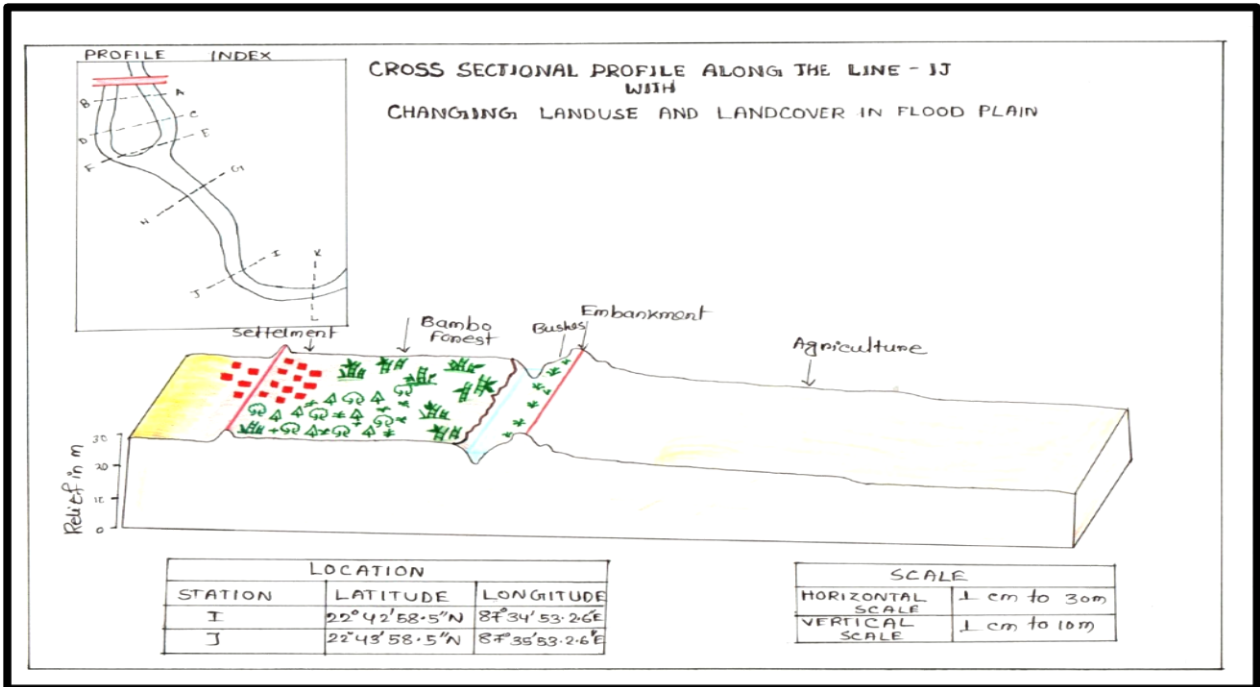 PROFILE INDEX
CROSS SECTIONAL PROFILE ALONG THE LINE - IJ
WITH
CHANGING LANDUSE AND LANDCOVER IN FLOOD PLAIN
B
A
C
D
E
F
G
H
I
K
J
L
Settelment
Bambo
Forest
Bushes
Embankment
Agriculture
Relief in m
30
20
10
0
LOCATION
STATION LATITUDE LONGITUDE
I 22°42'58.5"N 87°34'53.2.6"E
J 22°43'58.5"N 87°35'53.2.6"E
SCALE
HORIZONTAL SCALE 1 cm to 30m
VERTICAL SCALE 1 cm to 10m